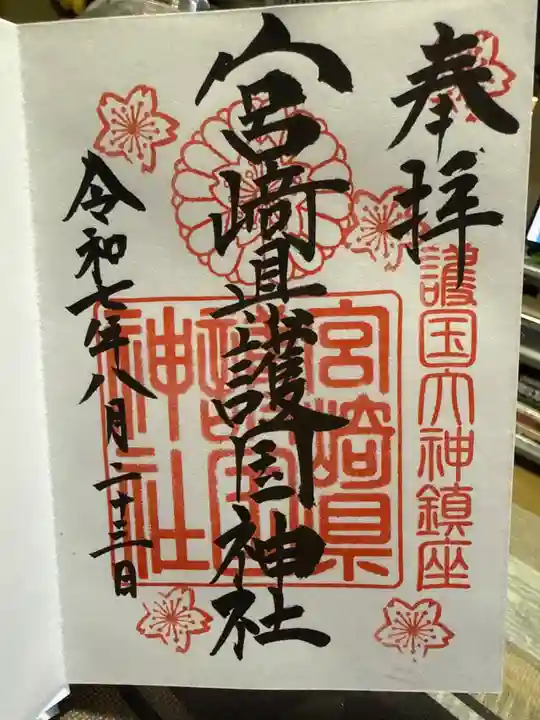 奉拝
護国大神鎮座
宮崎県護国神社
宮崎県
護国
神社
令和七年八月二十三日